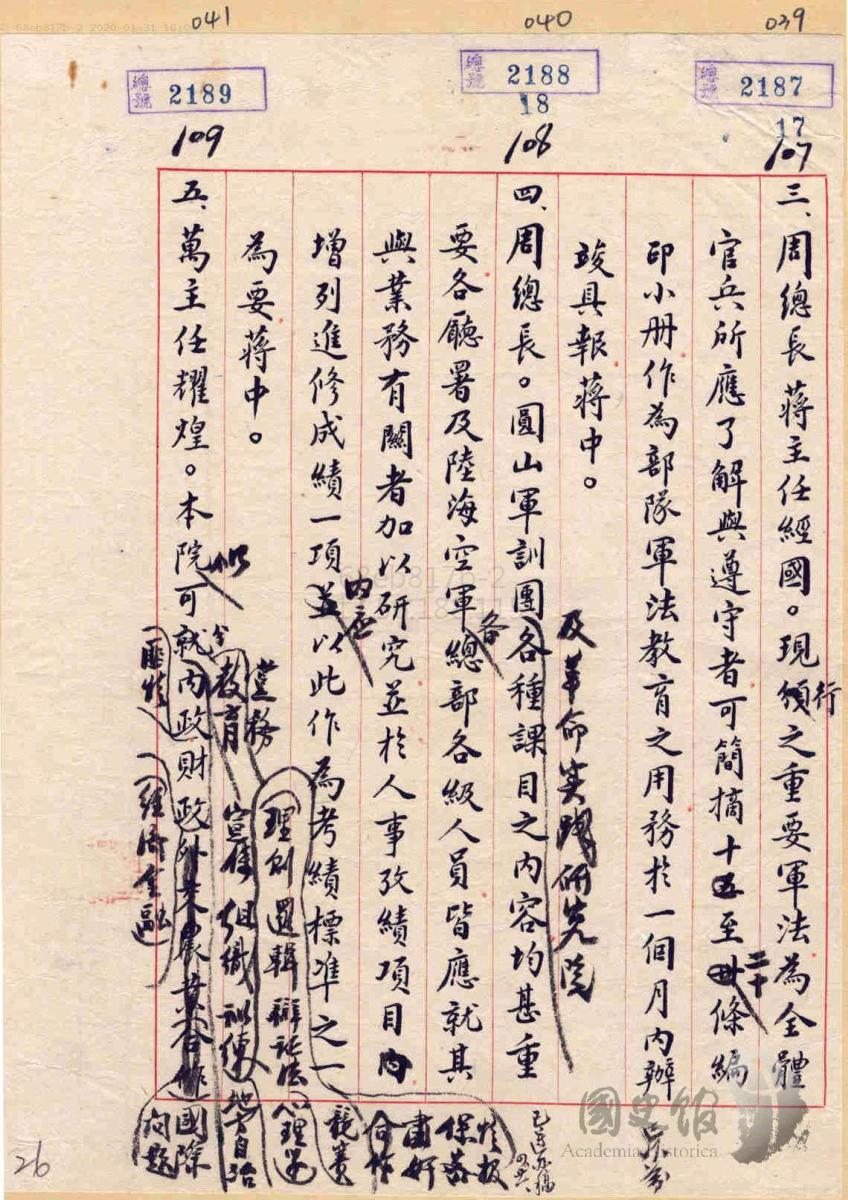 041
040
039
總號 2189
總號 2188
總號 2187
18
17
109
108
107
三、周總長蔣主任經國。現頒行之重要軍法為全體
官兵所應了解與遵守者可簡摘十五至二十條編
印小册作為部隊軍法教育之用務於一個月內辦
竣具報蔣中。
四、周總長。圓山軍訓團各種課目之內容均甚重
及革命實踐研究院
要各廳署及陸海空軍各總部各級人員皆應就其
與業務有關者加以研究並於人事攷績項目內
增列進修成績一項並以此作為考績標準之一
內應
為要蔣中。
五、萬主任耀煌。本院可就內政財政外交農業合作國際問題
似
分
黨務
教育
宣傳組織訓練地方自治
理則邏輯辯証法心理
競賽
合作
肅奸
保密
情报
匪情
經濟金融
26
國史館
Academia Historica